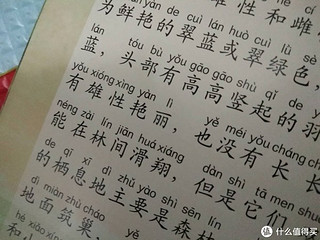 性和雌
yàn de cuì lán huò cuì lǜ sè
为鲜艳的翠蓝或翠绿色，
lán tóu bù yǒu gāo gāo shù qǐ de
蓝，头部有高高竖起的羽
yǒu xióng xìng yàn lì yě méi yǒu cháng
有雄性艳丽，也没有长长
néng zài lín jiān huá xiáng dàn shì tā men
能在林间滑翔，但是它们
de qī xī dì zhǔ yào shì sēn lín
的栖息地主要是森林
dì miàn zhù cháo
地面筑巢
值 什么值得买